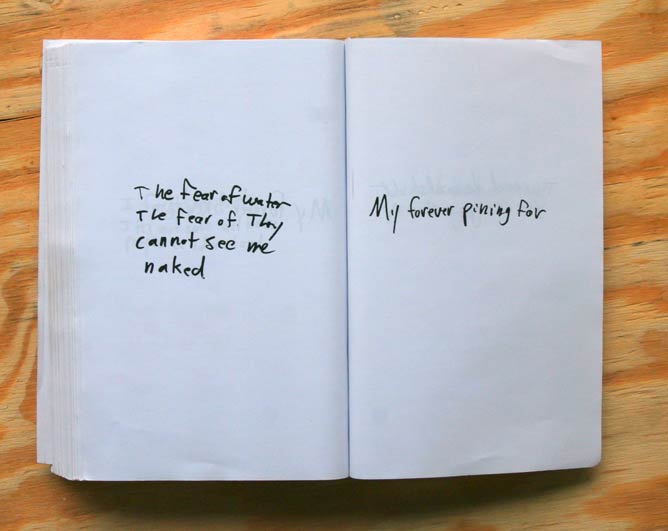 The fear of water
The fear of They
cannot see me
naked
My forever pining for